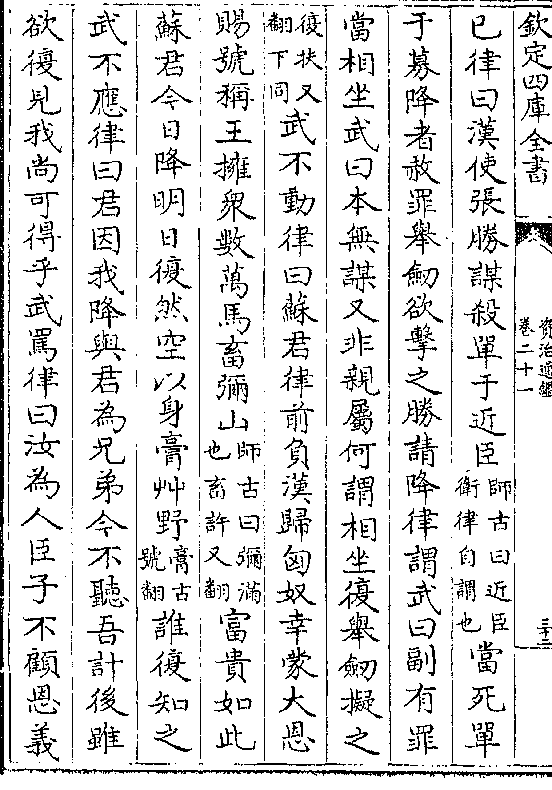 欽定四庫全書
資治通鑑
卷二十一
三十二
已律曰漢使張勝謀殺單于近臣師古曰近臣衛律自謂也當死單
于募降者赦罪舉劒欲擊之勝請降律謂武曰副有罪
當相坐武曰本無謀又非親屬何謂相坐復舉劒擬之
復扶又翻下同武不動律曰蘇君律前負漢歸匈奴幸蒙大恩
賜號稱王擁衆數萬馬畜彌山師古曰彌滿也畜許又翻富貴如此
蘇君今日降明日復然空以身膏艸野膏古號翻誰復知之
武不應律曰君因我降與君為兄弟今不聽吾計後雖
欲復見我尚可得乎武罵律曰汝為人臣子不顧恩義